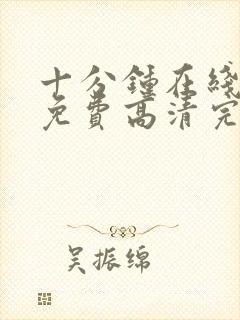 十分鍾在綫
免費高清完
吴振绵